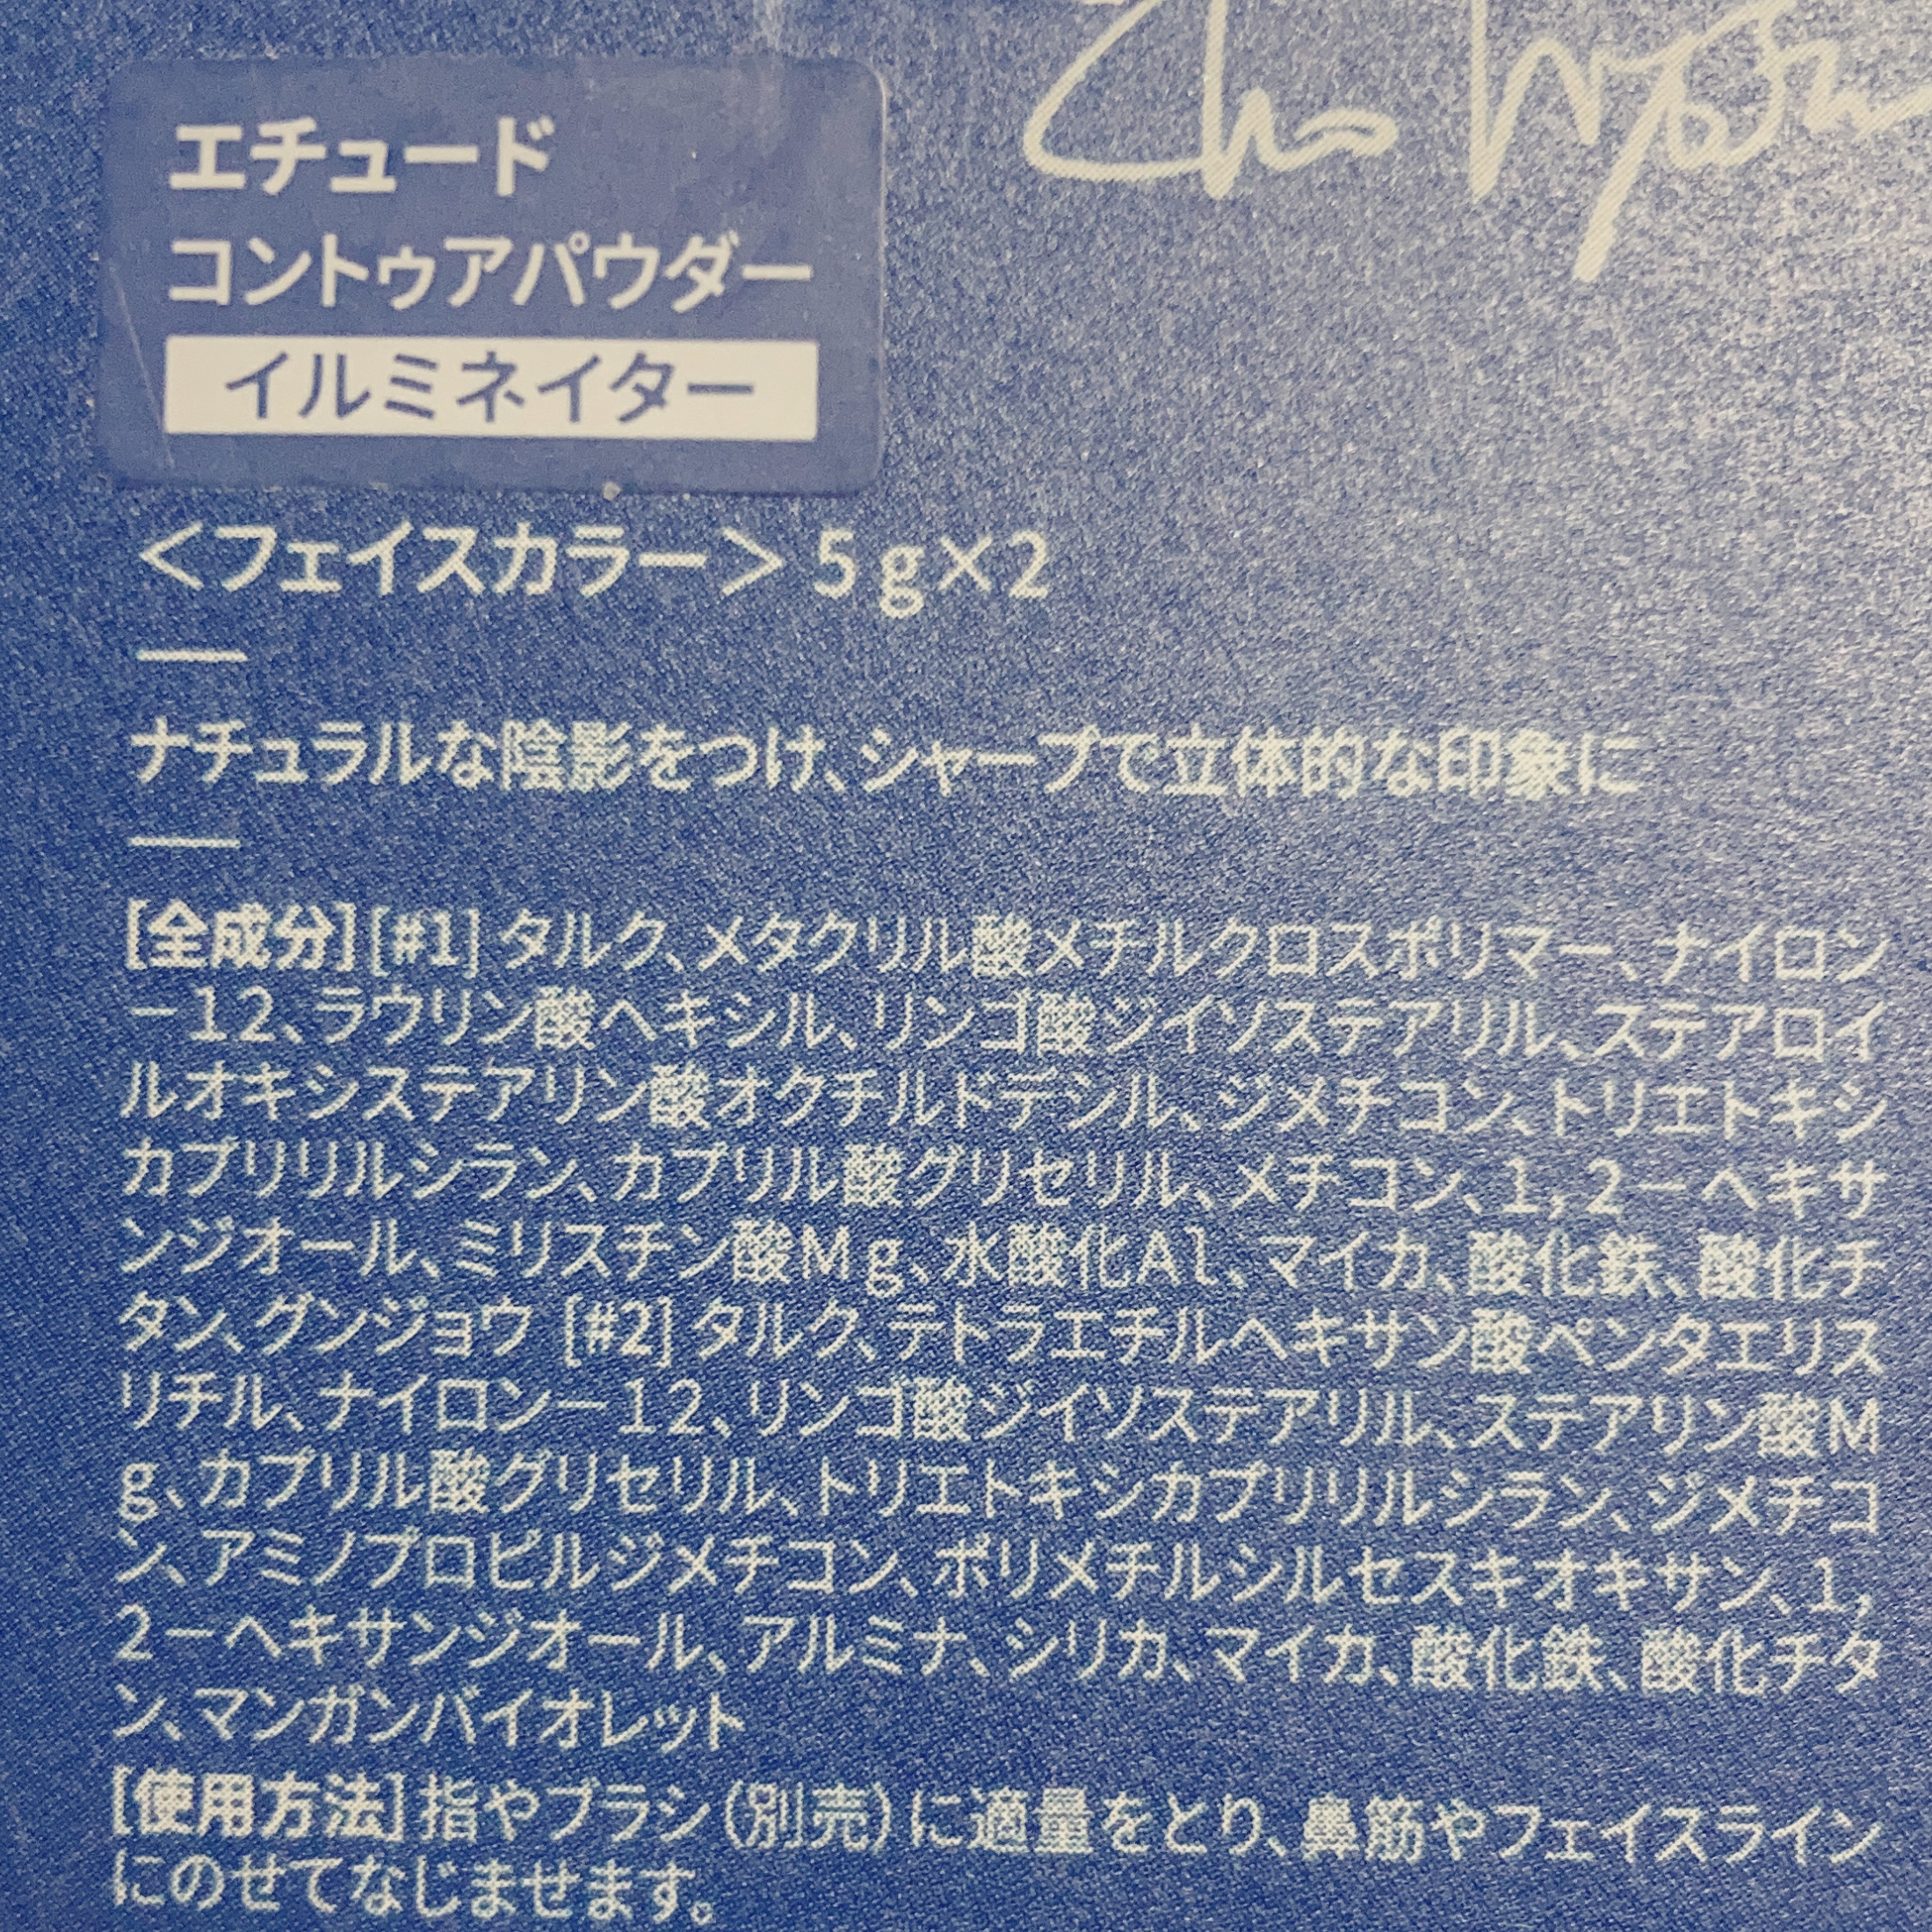 エチュード
コントゥアパウダー
イルミネイター
＜フェイスカラー＞5g×2
ナチュラルな陰影をつけ、シャープで立体的な印象に
[全成分][#1]タルク、メタクリル酸メチルクロスポリマー、ナイロン
－12、ラウリン酸ヘキシル、リンゴ酸ジイソステアリル、ステアロイ
ルオキシステアリン酸オクチルドデシル、ジメチコン、トリエトキシ
カプリリルシラン、カプリル酸グリセリル、メチコン、1,2－ヘキサ
ンジオール、ミリスチン酸Mg、水酸化Al、マイカ、酸化鉄、酸化チ
タン、グンジョウ [#2]タルク、テトラエチルヘキサン酸ペンタエリス
リチル、ナイロン－12、リンゴ酸ジイソステアリル、ステアリン酸M
g、カプリル酸グリセリル、トリエトキシカプリリルシラン、ジメチコ
ン、アミノプロピルジメチコン、ポリメチルシルセスキオキサン、1,
2－ヘキサンジオール、アルミナ、シリカ、マイカ、酸化鉄、酸化チタ
ン、マンガンバイオレット
[使用方法]指やブラシ(別売)に適量をとり、鼻筋やフェイスライン
にのせてなじませます。